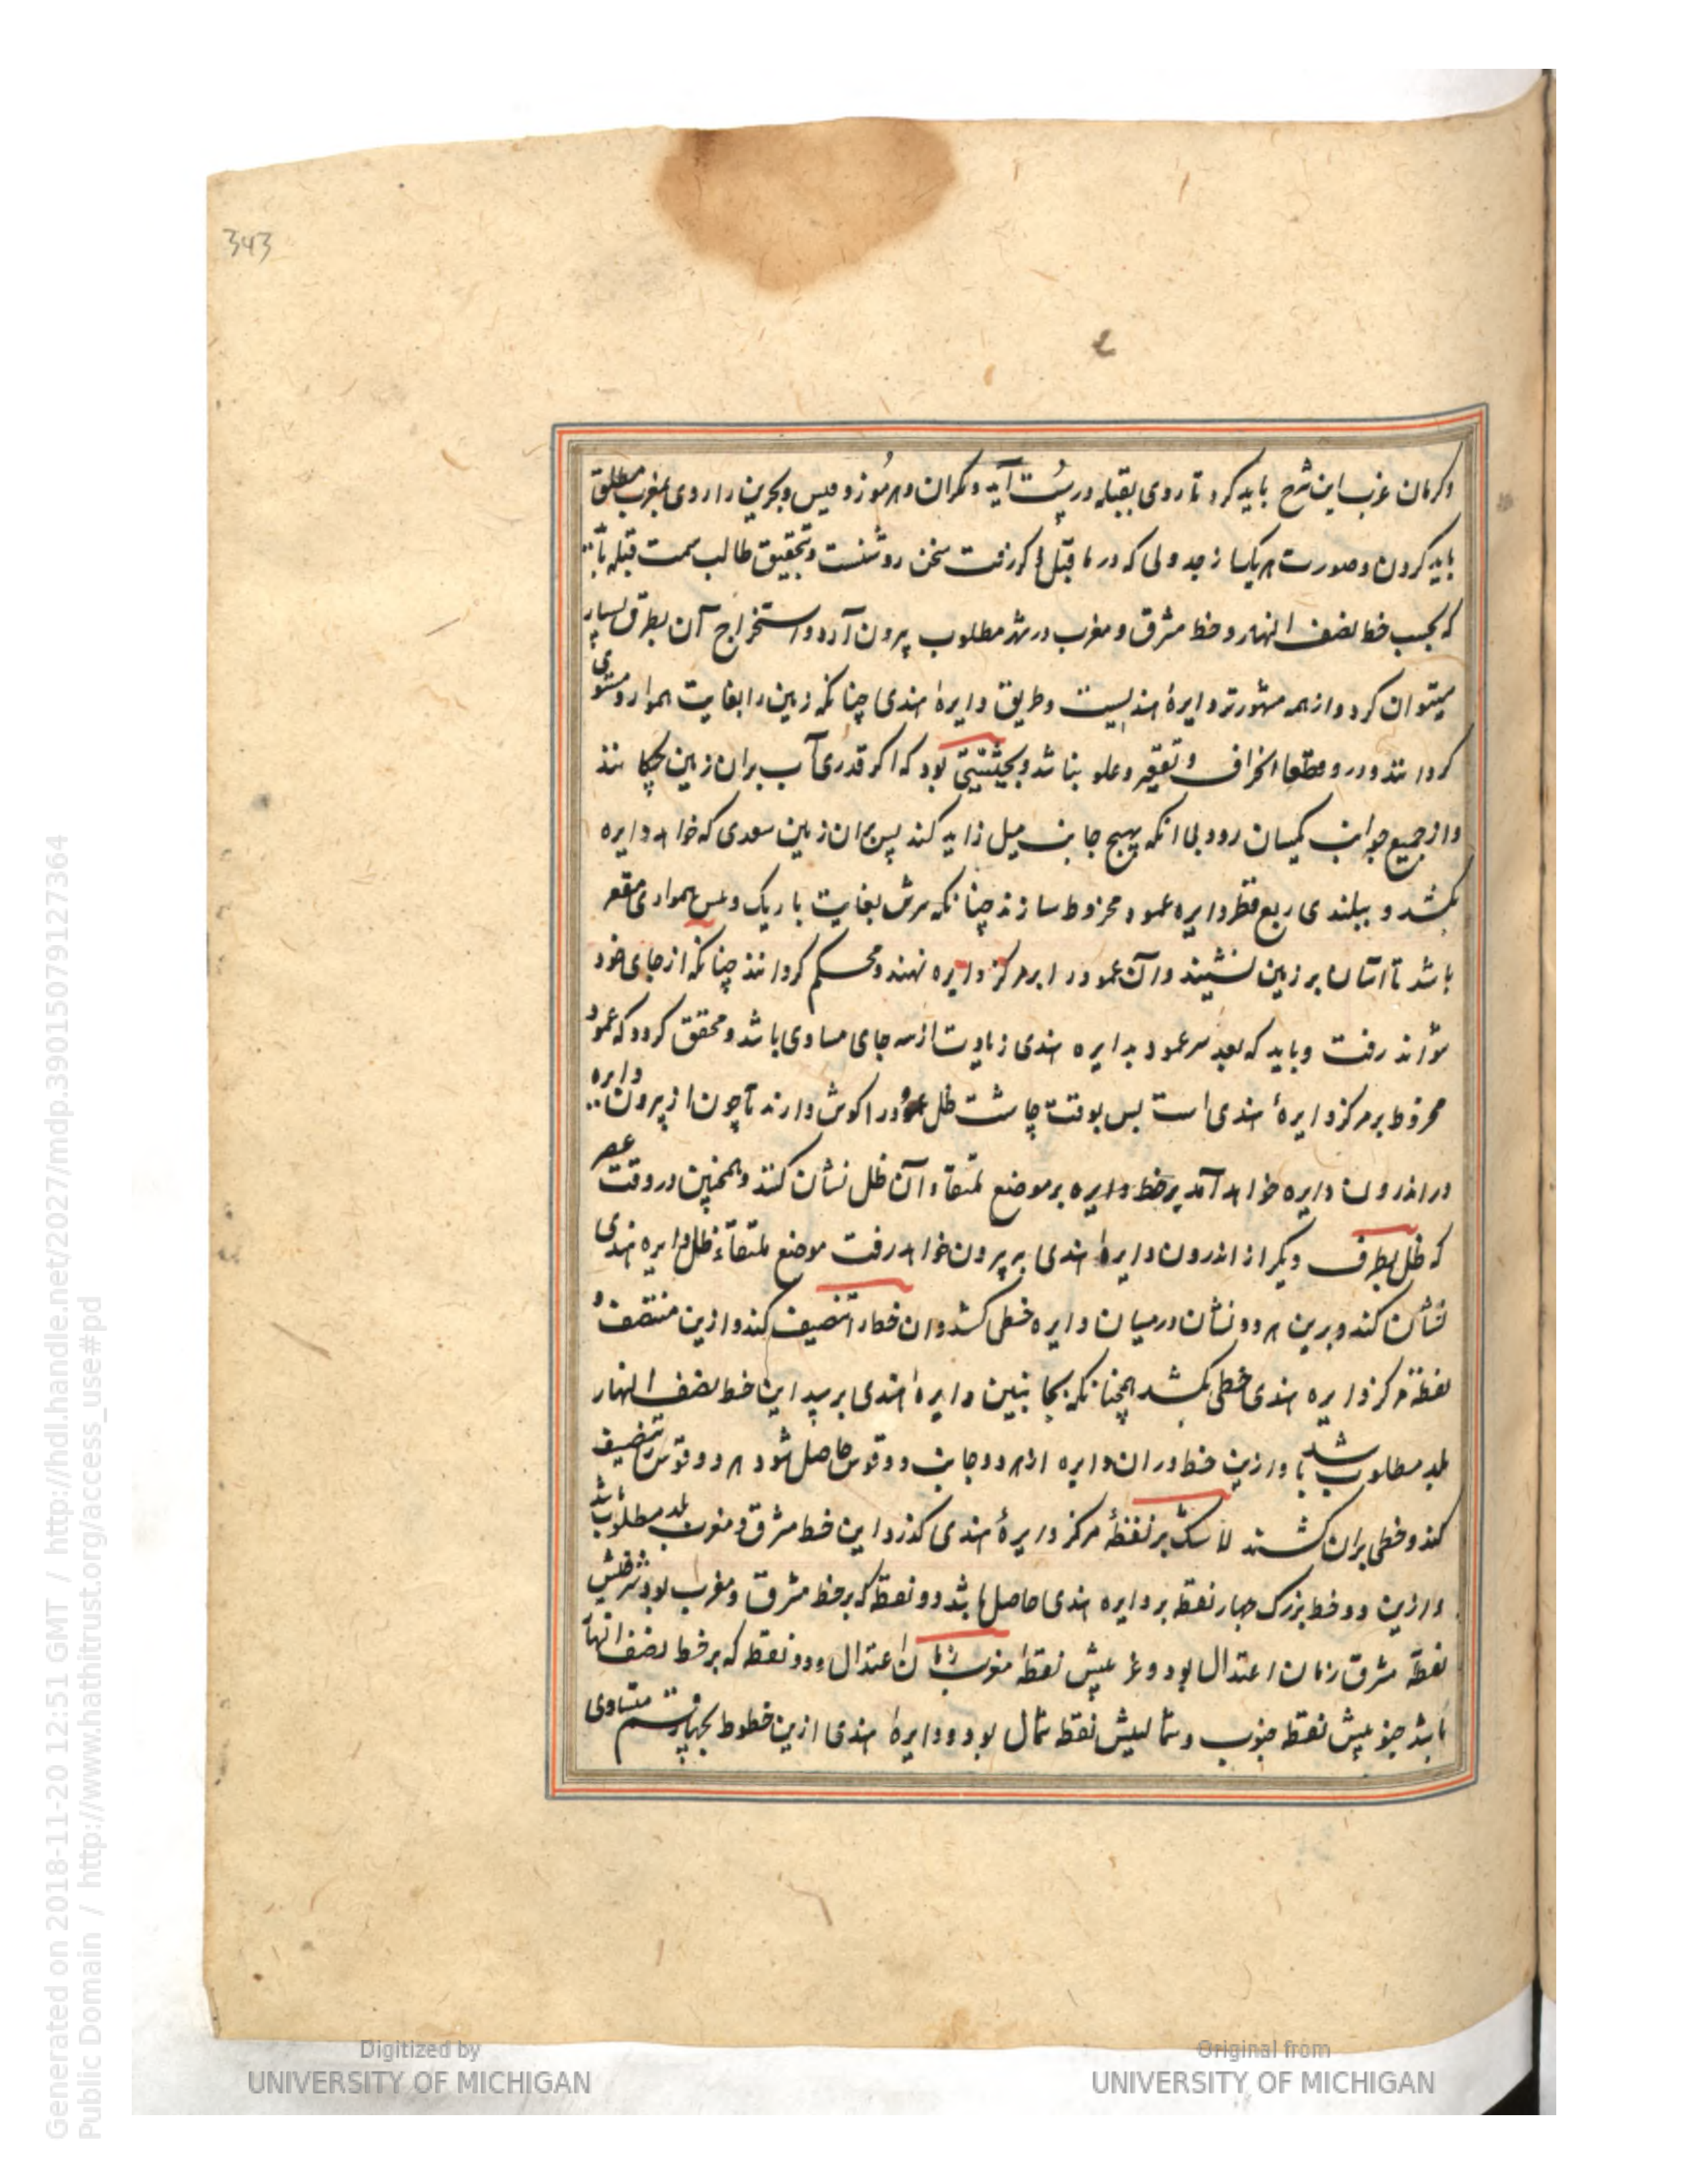 343
وکرمان غرب این شرح باید کرد تا روی بقبله درست آید ومکران وهرموز وقیس وبحرین را روی بمغرب مطلق
باید کردن وصورت هریک از جدولی که در ماقبل کرفت سخن روشنست وتحقیق طالب سمت قبله
که بحسب خط نصف النهار وخط مشرق ومغرب در شهر مطلوب بیرون آرد واستخراج آن بطرق بسیار
میتوان کرد واز همه مشهورتر دایرهٔ هندیست وطریق دایرهٔ هندی چنانکه زمین را بغایت هموار ومستوی
کردانند ودرو قطعا انحراف وتقعر وعلو نباشد وبحیثیتی بود که اکر قدری آب بران زمین بچکانند
واز جمیع جوانب یکسان رود بی انکه بهیچ جانب میل زاید کند پس بران زمین بعدی که خواهد دایره
بکشد وببلندی ربع قطر دایره عمود مخروط سازند چنانکه سرش بغایت باریک و همواری مقعر
باشد تا آسان بر زمین نشیند وآن عمود را بر مرکز دایره نهند ومحکم کردانند چنانکه از جای خود
نتواند رفت وباید که بعد سر عمود بدایره هندی زیادت از سه جای مساوی باشد ومحقق کردد که عمود
مخروط بر مرکز دایرهٔ هندی است پس بوقت چاشت ظل عمود را کوش دارند تا چون از بیرون دایره
در اندرون دایره خواهد آمد بر خط دایره بر موضع ملتقاء آن ظل نشان کنند وهمچنین در وقت عصر
که ظل بطرف دیکر از اندرون دایرهٔ هندی بر بیرون خواهد رفت موضع ملتقاء ظل ودایره هندی
نشان کند وبرین هر دو نشان در میان دایره خطی کشد وان خط را تنصیف کند وازین منتصف و
نقطهٔ مرکز دایره هندی خطی بکشد همچنانکه بجانبین دایرهٔ هندی برسد این خط نصف النهار
بلد مطلوب باشد وازین خط دران دایره از هر دو جانب دو قوس حاصل شود هر دو قوس را تنصیف
کند وخطی بران کشند لاشک بر نقطهٔ مرکز دایرهٔ هندی کذرد این خط مشرق ومغرب بلد مطلوب باشد
وازین دو خط بزرک چهار نقطه بر دایره هندی حاصل باشد دو نقطه که بر خط مشرق ومغرب بود شرقیش
نقطهٔ مشرق زمان اعتدال بود وغربیش نقطهٔ مغرب زمان اعتدال ودو نقطه که بر خط نصف النهار
باشد جنوبیش نقطه جنوب وشمالیش نقطه شمال بود ودایرهٔ هندی ازین خطوط بچهار قسم متساوی
Digitized by
UNIVERSITY OF MICHIGAN
Original from
UNIVERSITY OF MICHIGAN
Generated on 2018-11-20 12:51 GMT / http://hdl.handle.net/2027/mdp.39015079127364
Public Domain / http://www.hathitrust.org/access_use#pd